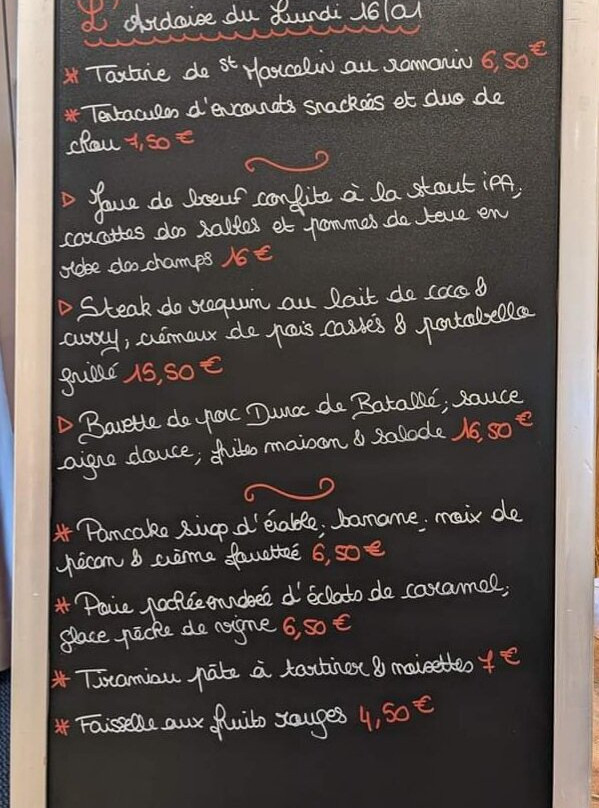 L'Ardoise du Lundi 16/01
* Tartine de St Marcelin au romarin 6,50€
* Tentacules d'encornets snackées et duo de
chou 7,50€
▷ Joue de boeuf confite à la stout iPA,
carottes des sables et pommes de terre en
robe des champs 16€
▷ Steak de requin au lait de coco &
curry, crémeux de pois cassés & portobello
grillé 15,50€
▷ Bavette de porc Duroc de Batallé, sauce
aigre douce, frites maison & salade 16,50€
* Pancake sirop d'érable, banane, noix de
pécan & crème fouettée 6,50€
* Poire pochée enrobée d'éclats de caramel,
glace pêche de vigne 6,50€
* Tiramisu pâte à tartiner & noisettes 7€
* Faisselle aux fruits rouges 4,50€